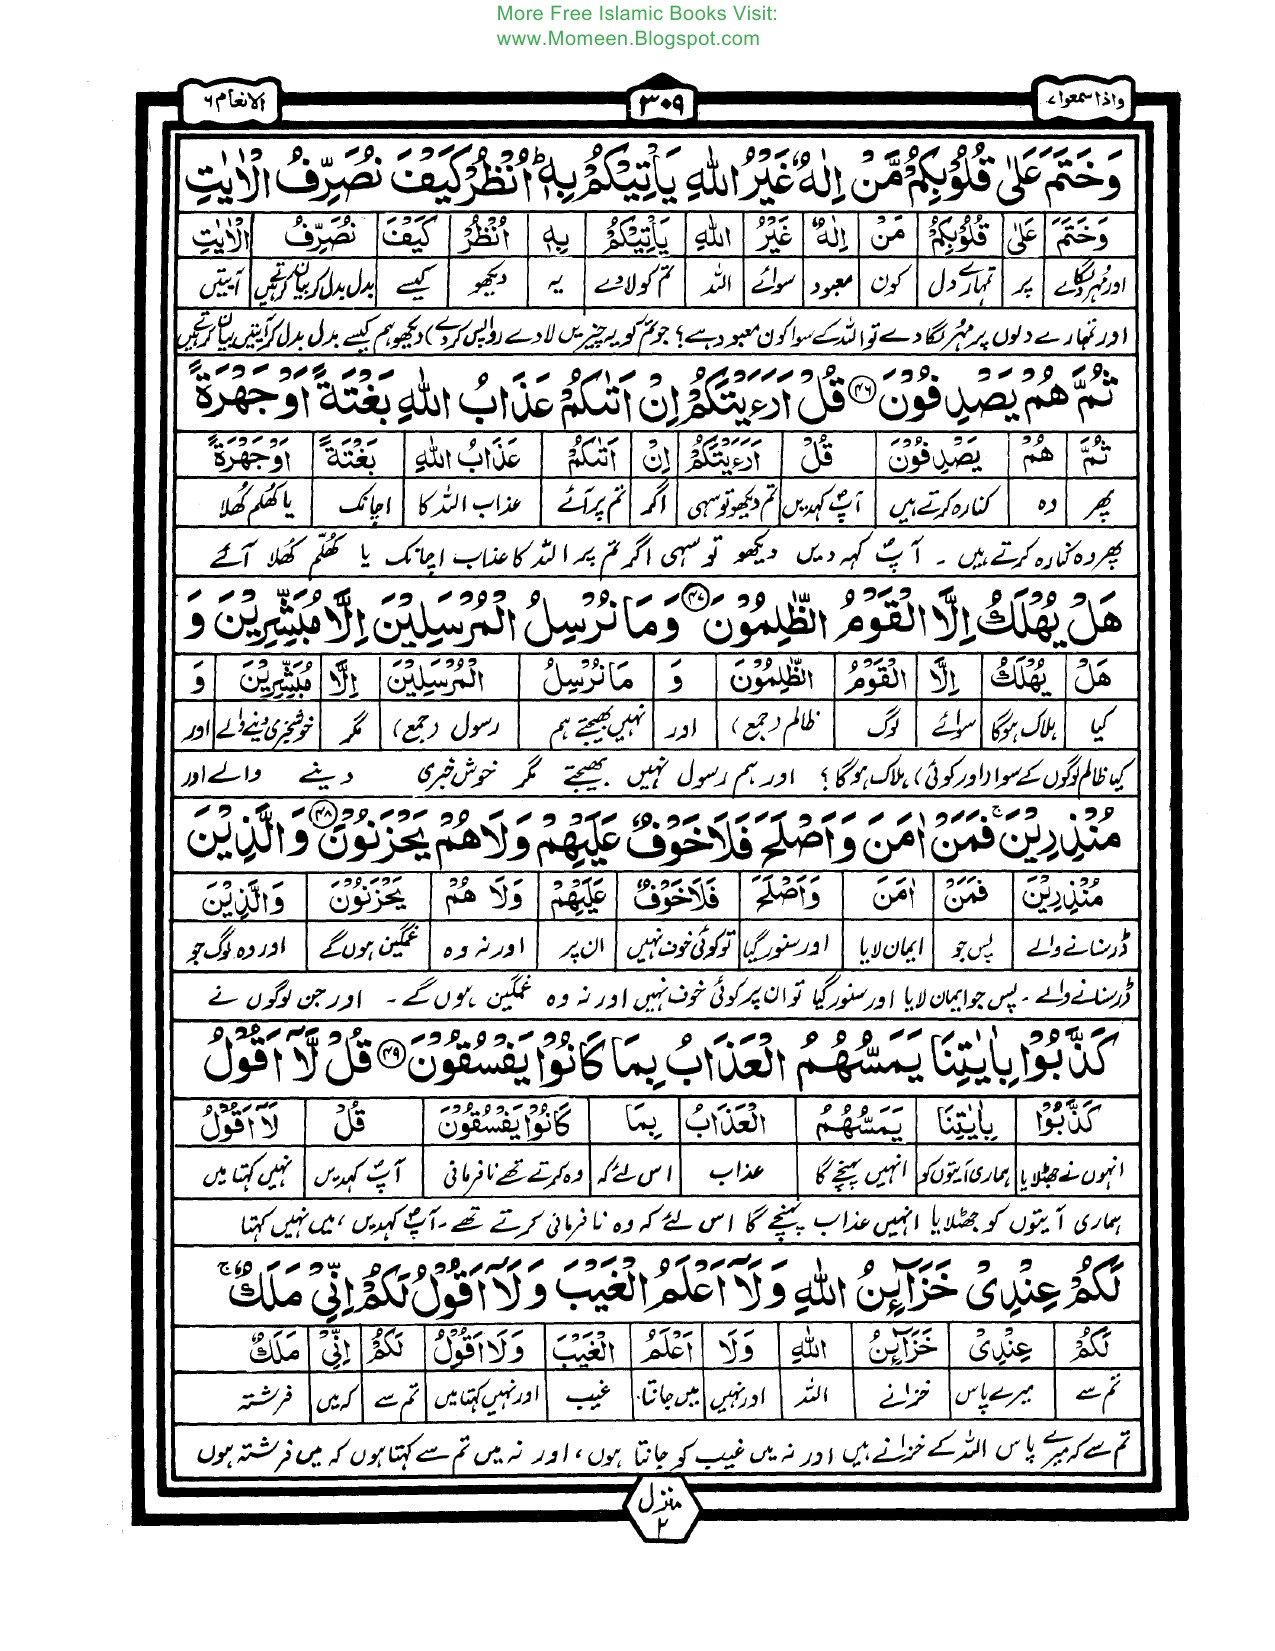 More Free Islamic Books Visit:
www.Momeen.Blogspot.com
واذا سمعوا ٧
٣٠٩
الانعام ٦
وَخَتَمَ عَلٰی قُلُوْبِكُمْ مَّنْ اِلٰهٌ غَیْرُ اللّٰهِ یَاْتِیْكُمْ بِهٖ ؕ اُنْظُرْ كَیْفَ نُصَرِّفُ الْاٰیٰتِ
وَخَتَمَ عَلٰی قُلُوْبِكُمْ مَنْ اِلٰهٌ غَیْرُ اللّٰهِ یَاْتِیْكُمْ بِهٖ اُنْظُرْ كَیْفَ نُصَرِّفُ الْاٰیٰتِ
اور مُہر لگا دے پر تمہارے دل کون معبود سوائے اللہ تم کو لا دے یہ دیکھو کیسے بدل بدل کر بیان کرتے ہیں آیتیں
اور تمہارے دلوں پر مہر لگا دے تو اللہ کے سوا کون معبود ہے؟ جو تم کو یہ چیزیں لا دے (واپس کر دے) دیکھو ہم کیسے بدل بدل کر آیتیں بیان کرتے ہیں
ثُمَّ هُمْ یَصْدِفُوْنَ ﴿۴۶﴾ قُلْ اَرَءَیْتَكُمْ اِنْ اَتٰىكُمْ عَذَابُ اللّٰهِ بَغْتَةً اَوْ جَهْرَةً
ثُمَّ هُمْ یَصْدِفُوْنَ قُلْ اَرَءَیْتَكُمْ اِنْ اَتٰىكُمْ عَذَابُ اللّٰهِ بَغْتَةً اَوْ جَهْرَةً
پھر وہ کنارہ کرتے ہیں آپؐ کہدیں تم دیکھو تو سہی اگر تم پر آئے عذاب اللہ کا اچانک یا کھلم کھلا
پھر وہ کنارہ کرتے ہیں ۔ آپؐ کہہ دیں دیکھو تو سہی اگر تم پر اللہ کا عذاب اچانک یا کھُلّم کھُلا آئے
هَلْ یُهْلَكُ اِلَّا الْقَوْمُ الظّٰلِمُوْنَ ﴿۴۷﴾ وَمَا نُرْسِلُ الْمُرْسَلِیْنَ اِلَّا مُبَشِّرِیْنَ وَ
هَلْ یُهْلَكُ اِلَّا الْقَوْمُ الظّٰلِمُوْنَ وَ مَا نُرْسِلُ الْمُرْسَلِیْنَ اِلَّا مُبَشِّرِیْنَ وَ
کیا ہلاک ہوگا سوائے لوگ ظالم (جمع) اور نہیں بھیجتے ہم رسول (جمع) مگر خوشخبری دینے والے اور
کیا ظالم لوگوں کے سوا (اور کوئی) ہلاک ہوگا؟ اور ہم رسول نہیں بھیجتے مگر خوش خبری دینے والے اور
مُنْذِرِیْنَ ۚ فَمَنْ اٰمَنَ وَاَصْلَحَ فَلَا خَوْفٌ عَلَیْهِمْ وَلَا هُمْ یَحْزَنُوْنَ ﴿۴۸﴾ وَالَّذِیْنَ
مُنْذِرِیْنَ فَمَنْ اٰمَنَ وَاَصْلَحَ فَلَا خَوْفٌ عَلَیْهِمْ وَلَا هُمْ یَحْزَنُوْنَ وَالَّذِیْنَ
ڈر سنانے والے پس جو ایمان لایا اور سنور گیا تو کوئی خوف نہیں ان پر اور نہ وہ غمگین ہوں گے اور وہ لوگ جو
ڈر سنانے والے ۔ پس جو ایمان لایا اور سنور گیا تو ان پر کوئی خوف نہیں اور نہ وہ غمگین ہوں گے ۔ اور جن لوگوں نے
كَذَّبُوْا بِاٰیٰتِنَا یَمَسُّهُمُ الْعَذَابُ بِمَا كَانُوْا یَفْسُقُوْنَ ﴿۴۹﴾ قُلْ لَّاۤ اَقُوْلُ
كَذَّبُوْا بِاٰیٰتِنَا یَمَسُّهُمُ الْعَذَابُ بِمَا كَانُوْا یَفْسُقُوْنَ قُلْ لَاۤ اَقُوْلُ
انہوں نے جھٹلایا ہماری آیتوں کو انہیں پہنچے گا عذاب اس لئے کہ وہ کرتے تھے نافرمانی آپؐ کہدیں نہیں کہتا میں
ہماری آیتوں کو جھٹلایا انہیں عذاب پہنچے گا اس لئے کہ وہ نافرمانی کرتے تھے ۔ آپؐ کہدیں، میں نہیں کہتا
لَكُمْ عِنْدِیْ خَزَآئِنُ اللّٰهِ وَلَاۤ اَعْلَمُ الْغَیْبَ وَلَاۤ اَقُوْلُ لَكُمْ اِنِّیْ مَلَكٌ ۚ
لَكُمْ عِنْدِیْ خَزَآئِنُ اللّٰهِ وَلَا اَعْلَمُ الْغَیْبَ وَلَا اَقُوْلُ لَكُمْ اِنِّیْ مَلَكٌ
تم سے میرے پاس خزانے اللہ اور نہیں میں جانتا غیب اور نہیں کہتا میں تم سے کہ میں فرشتہ
تم سے کہ میرے پاس اللہ کے خزانے ہیں اور نہ میں غیب کو جانتا ہوں، اور نہ میں تم سے کہتا ہوں کہ میں فرشتہ ہوں
منزل
٢